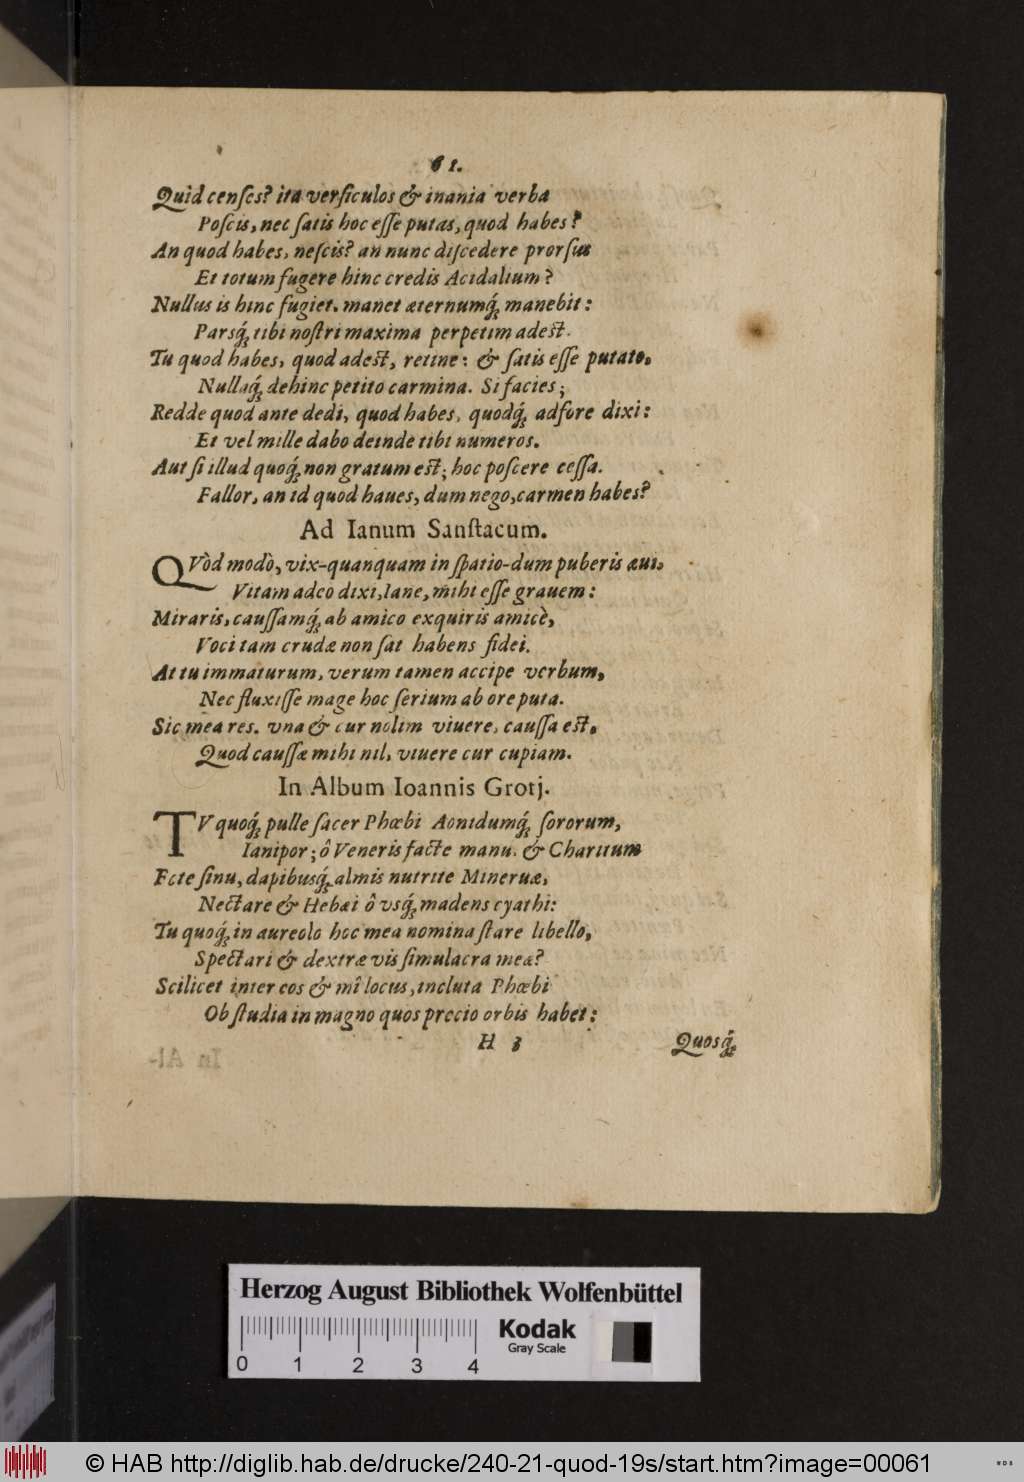 61.
Quid censes? ita versiculos & inania verba
Poscis, nec satis hoc esse putas, quod habes?
An quod habes, nescis? an nunc discedere prorsus
Et totum fugere hinc credis Acidalium?
Nullus is hinc fugiet. manet æternumq́; manebit:
Parsq́; tibi nostri maxima perpetim adest.
Tu quod habes, quod adest, retine: & satis esse putato.
Nullaq́; dehinc petito carmina. Si facies;
Redde quod ante dedi, quod habes, quodq́; adfore dixi:
Et vel mille dabo deinde tibi numeros.
Aut si illud quoq́; non gratum est; hoc poscere cessa.
Fallor, an id quod haues, dum nego, carmen habes?
Ad Ianum Sanstacum.
QVòd modò, vix-quanquam in spatio-dum puberis æui.
Vitam adeo dixi, Iane, mihi esse grauem:
Miraris, caussamq́; ab amico exquiris amicè,
Voci tam crudæ non sat habens fidei.
At tu immaturum, verum tamen accipe verbum,
Nec fluxisse mage hoc serium ab ore puta.
Sic mea res. vna & cur nolim viuere, caussa est.
Quod caussæ mihi nil, viuere cur cupiam.
In Album Ioannis Grotj.
TV quoq́; pulle sacer Phœbi Aonidumq́; sororum,
Ianipor; ô Veneris facte manu. & Charitum
Fote sinu, dapibusq́; almis nutrite Mineruæ,
Nectare & Hebæi ô vsq́; madens cyathi:
Tu quoq́; in aureolo hoc mea nomina stare libello,
Spectari & dextræ vis simulacra meæ?
Scilicet inter eos & mî locus, incluta Phœbi
Ob studia in magno quos precio orbis habet:
H 3 Quosq́;
Herzog August Bibliothek Wolfenbüttel
Kodak
Gray Scale
0 1 2 3 4
© HAB http://diglib.hab.de/drucke/240-21-quod-19s/start.htm?image=00061